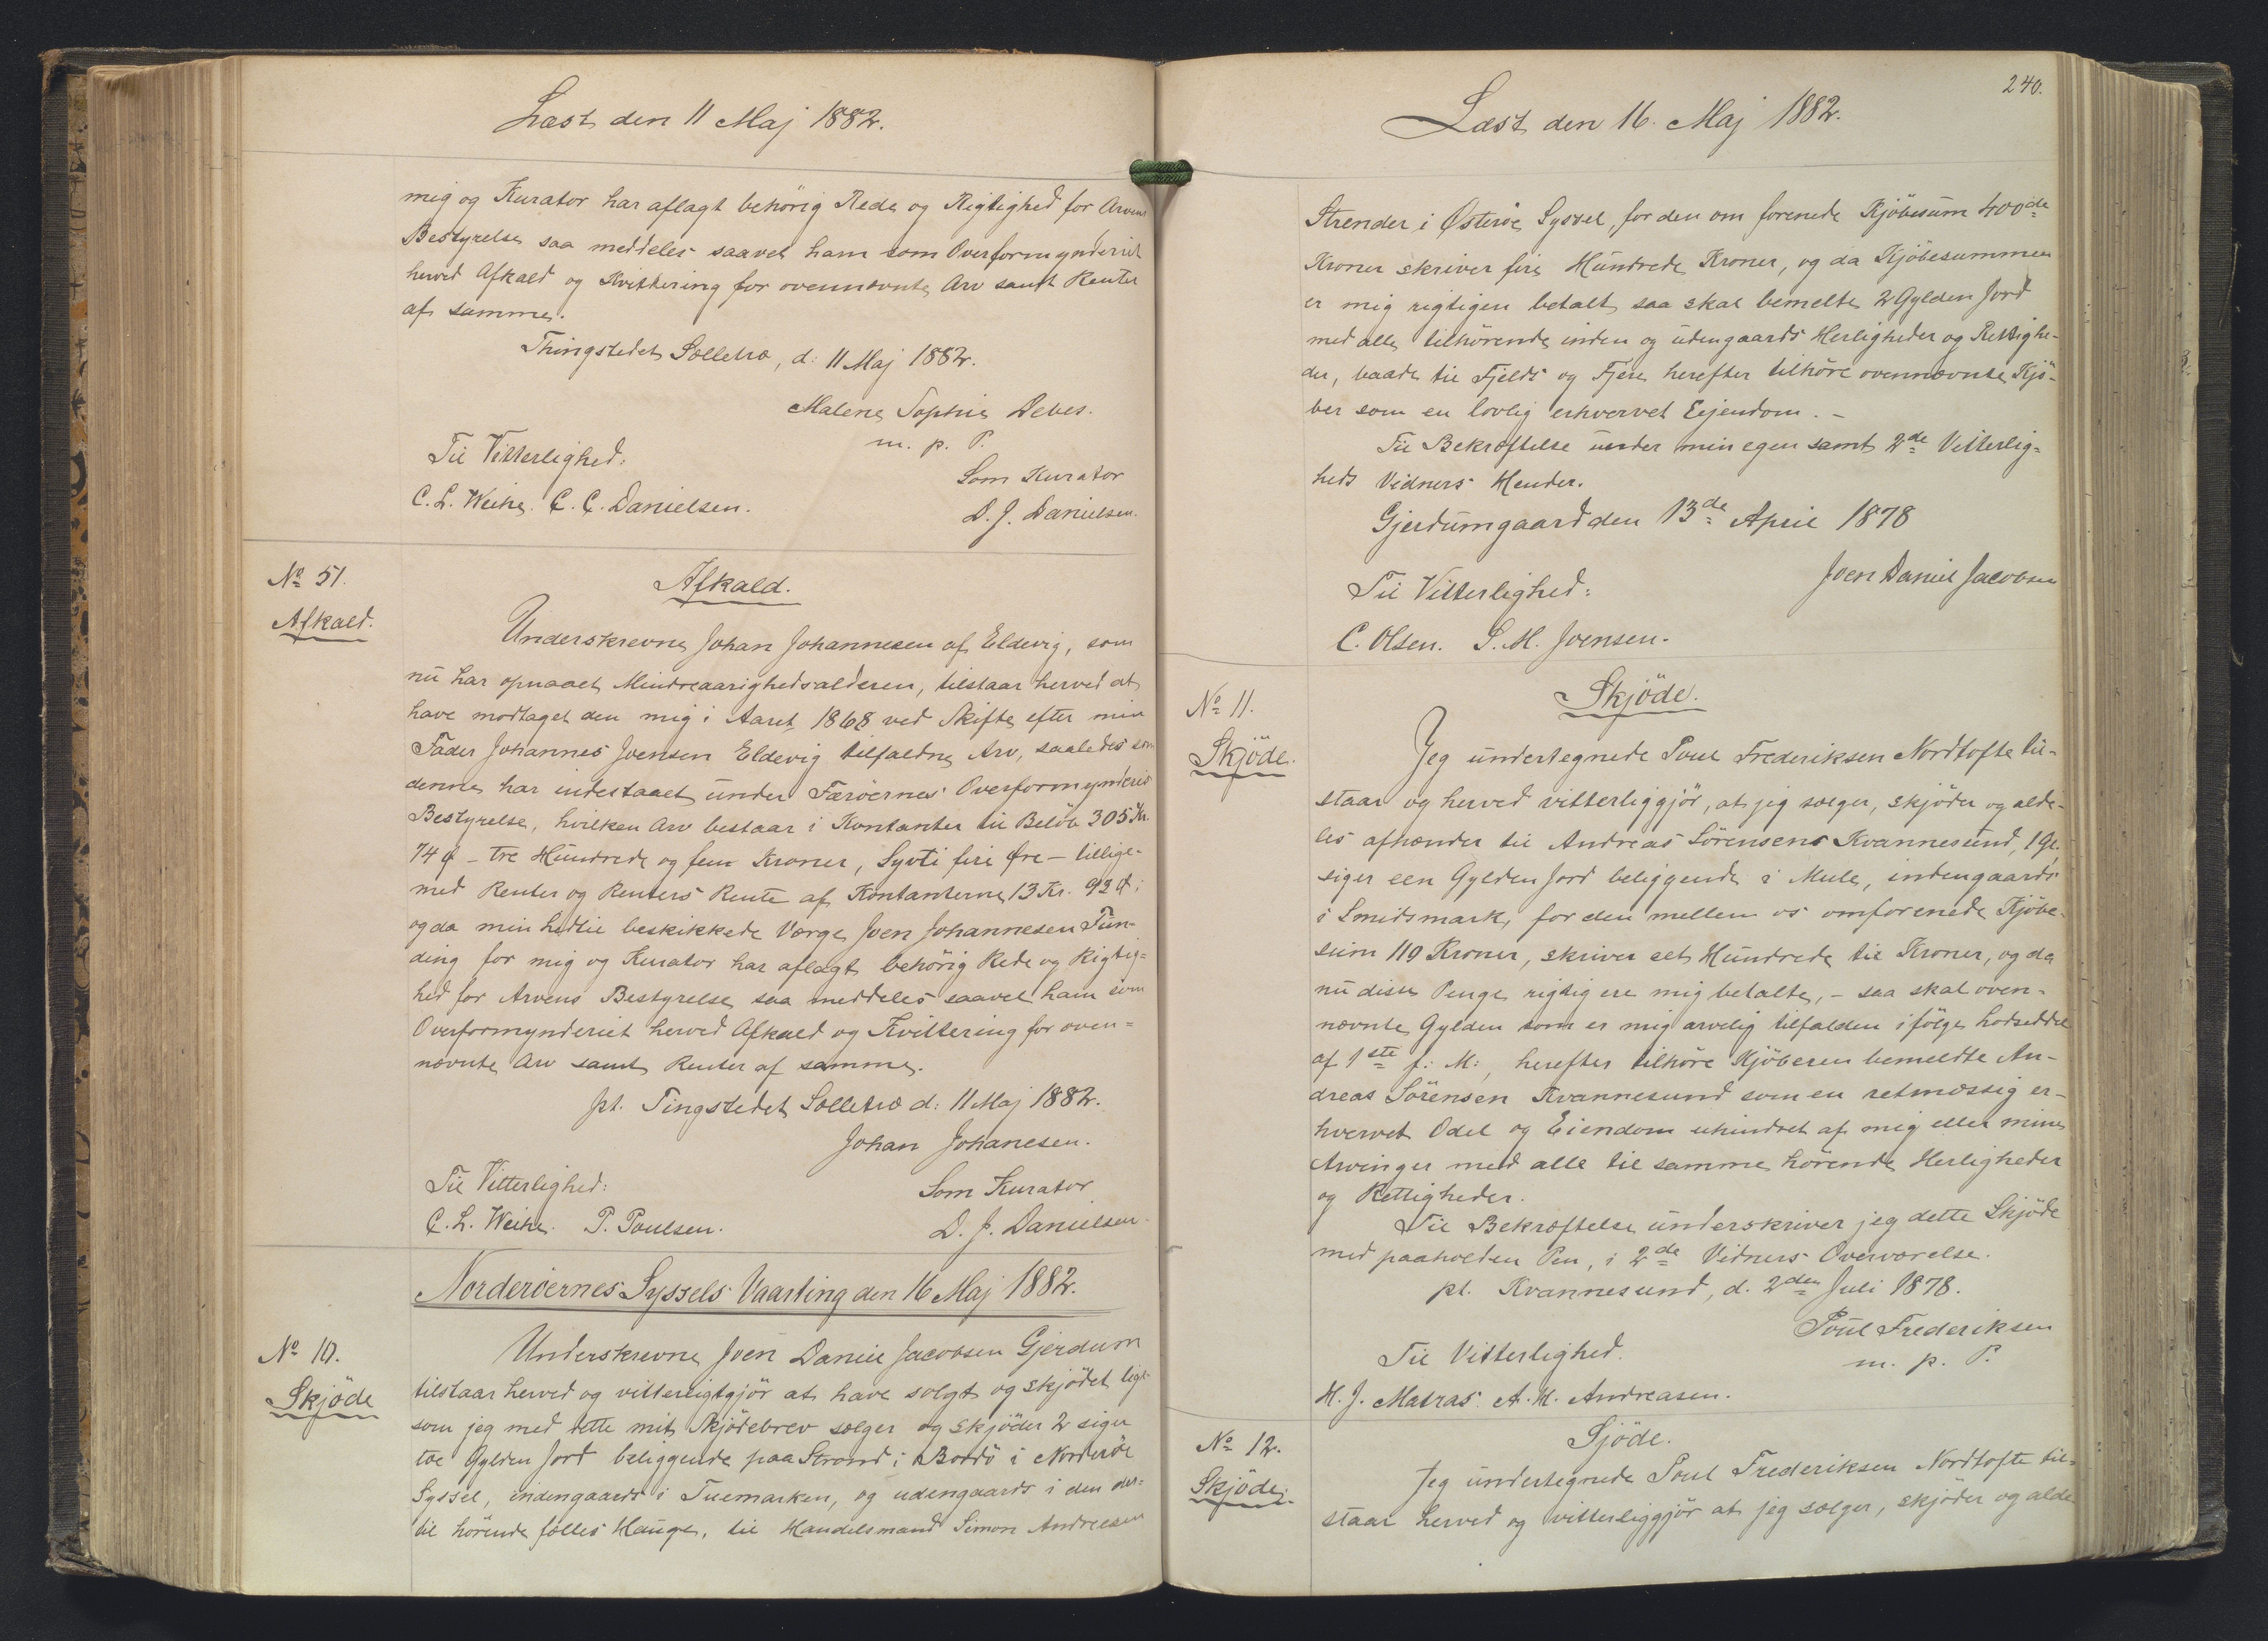 Læst den 11 Maj 1882.
mig og Kurator har aflagt behörig Rede og Rigtighed for Arvens
Bestyrelse saa meddeles saavel ham som Overformynderiet
herved Afkald og Kvittering for ovennævnte Arv samt Renter
af samme.
Thingstedet Selletræ, d: 11 Maj 1882.
Malene Sophie Debes.
m. p. P.
Til Vitterlighed:
Som Kurator
C. L. Weihe. C. C. Danielsen.
D. J. Danielsen.
№ 51.
Afkald.
Afkald.
Underskrevne Johan Johannesen af Eldevig, som
nu har opnaaet Mindreaarighedsalderen, tilstaar herved at
have modtaget den mig i Aaret 1868 ved Skifte efter min
Fader Johannes Joensen Eldevig tilfaldne Arv, saaledes som
denne har indestaaet under Færöernes Overformynderis
Bestyrelse, hvilken Arv bestaar i Kontanter til Belöb 305 Kr.
74 Ø – tre Hundrede og fem Kroner, Syvti fire Øre – tillige-
med Renter og Renters Rente af Kontanterne 13 Kr. 92 Ø;
og da min hidtil beskikkede Værge Joen Johannesen Fun-
ding for mig og Kurator har aflagt behörig Rede og Rigtig=
hed for Arvens Bestyrelse saa meddeles saavel ham som
Overformynderiet herved Afkald og Kvittering for oven=
nævnte Arv samt Renter af samme.
pt. Tingstedet Selletræ d: 11 Maj 1882.
Johan Johanesen.
Til Vitterlighed:
Som Kurator
C. L. Weihe. P. Poulsen.
D. J. Danielsen.
Norderöernes Syssels Vaarting den 16 Maj 1882.
№ 10.
Skjöde
Underskrevne Joen Daniel Jacobsen Gjerdum
tilstaar herved og vitterligtgjör at have solgt og skjödet lige-
som jeg med dette mit Skjödebrev sælger og skjöder 2 siger
toe Gylden Jord beliggende paa Strond i Bordö i Norderöe
Syssel, indengaards i Tuemarken, og udengaards i den der=
til hörende fælles Hauge, til Handelsmand Simon Andreasen
240.
Læst den 16. Maj 1882.
Strender i Østeröe Syssel, for den om forenede Kjöbesum 400de
Kroner skriver fire Hundrede Kroner, og da Kjöbesummen
er mig rigtigen betalt saa skal bemelte 2 Gylden Jord
med alle tilhörende inden og udengaards Herligheder og Rettighe-
der, baade til Fjelds og Fjere herefter tilhöre ovennævnte Kjö-
ber som en lovlig erhvervet Eijendom. –
Til Bekræftelse under min egen samt 2de Vitterlig=
heds Vidners Hender.
Gjerdumgaard den 13de April 1878
Joen Daniel Jacobsen
Til Vitterlighed:
C. Olsen. S. M. Joensen.
№ 11.
Skjöde.
Skjöde.
Jeg undertegnede Poul Frederiksen Nordtofte til-
staar og herved vitterliggjör, at jeg sælger, skjöder og alde-
les afhænder til Andreas Sörensens Kvannesund, 1 Gl.
siger een Gylden Jord beliggende i Mule, indengaards
i Smidsmark, for den mellem os omforenede Kjöbe-
sum 110 Kroner, skriver eet Hundrede tie Kroner, og da
nu disse Penge rigtig ere mig betalte, – saa skal oven-
nævnte Gylden som er mig arvelig tilfalden ifölge Lodseddel
af 1ste f: M:, herefter tilhöre Kjöberen bemeldte An-
dreas Sörensen Kvannesund som en retmæssig er-
hvervet Odel og Eiendom uhindret af mig eller mine
Arvinger med alle til samme hörende Herligheder
og Rettigheder.
Til Bekræftelse underskriver jeg dette Skjöde
med paaholden Pen, i 2de Vidners Overværelse.
pt. Kvannesund, d. 2den Juli 1878.
Poul Frederiksen
m. p. P.
Til Vitterlighed.
H. J. Matras. A. M. Andreasen.
№ 12.
Skjöde.
Sjöde.
Jeg undertegnede Poul Frederiksen Nordtofte til=
staar herved og vitterliggjör at jeg sælger, skjöder og alde-